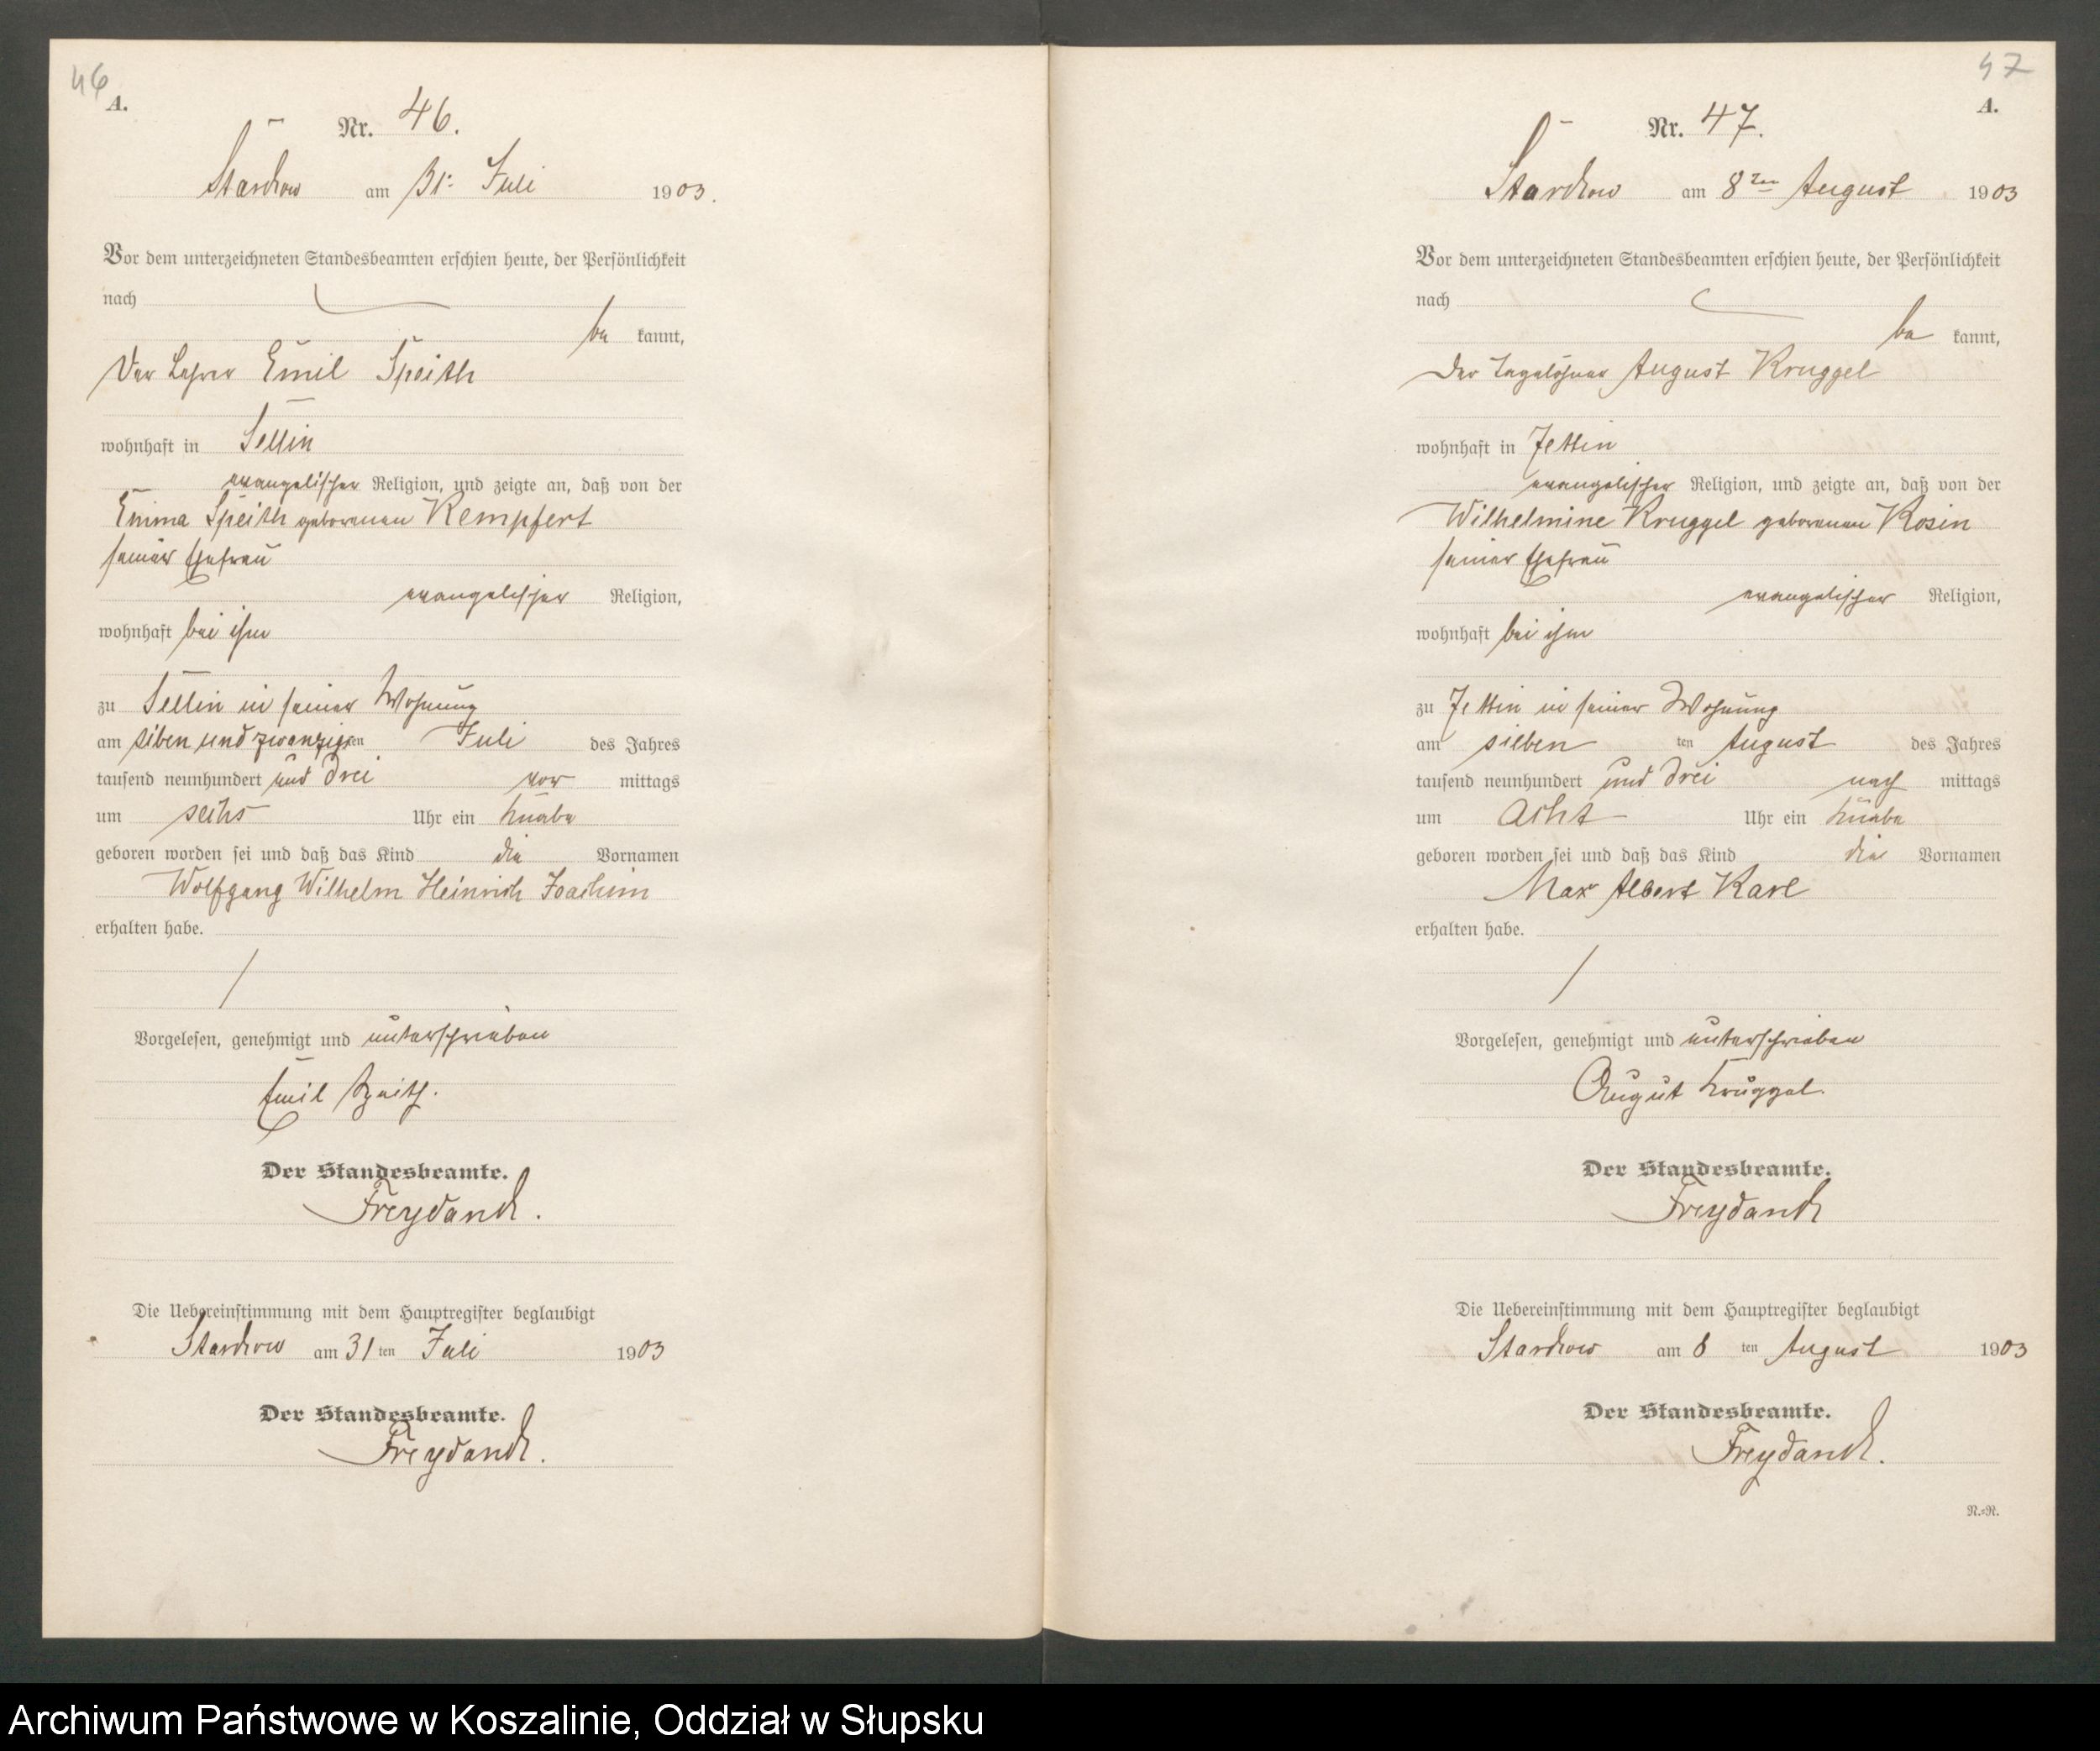 46
A.
Nr. 46.
Starkow am 31. Juli 1903.
Vor dem unterzeichneten Standesbeamten erschien heute, der Persönlichkeit
nach
be kannt,
Der Lehrer Emil Speith
wohnhaft in Sellin
evangelischer Religion, und zeigte an, daß von der
Emma Speith geborenen Kempfert
seiner Ehefrau
evangelischer Religion,
wohnhaft bei ihm
zu Sellin in seiner Wohnung
am siben und zwanzigsten Juli des Jahres
tausend neunhundert und drei vor mittags
um sechs Uhr ein Knabe
geboren worden sei und daß das Kind die Vornamen
Wolfgang Wilhelm Heinrich Joachim
erhalten habe.
Vorgelesen, genehmigt und unterschrieben
Emil Speith.
Der Standesbeamte.
Freydanck.
Die Uebereinstimmung mit dem Hauptregister beglaubigt
Starkow am 31 ten Juli 1903
Der Standesbeamte.
Freydanck.
47
A.
Nr. 47.
Starkow am 8ten August 1903
Vor dem unterzeichneten Standesbeamten erschien heute, der Persönlichkeit
nach
be kannt,
Der Tagelöhner August Kruggel
wohnhaft in Jettin
evangelischer Religion, und zeigte an, daß von der
Wilhelmine Kruggel geborenen Rosin
seiner Ehefrau
evangelischer Religion,
wohnhaft bei ihm
zu Jettin in seiner Wohnung
am sieben ten August des Jahres
tausend neunhundert und drei nach mittags
um Acht Uhr ein Knabe
geboren worden sei und daß das Kind die Vornamen
Max Albert Karl
erhalten habe.
Vorgelesen, genehmigt und unterschrieben
Augut Kruggel.
Der Standesbeamte.
Freydanck
Die Uebereinstimmung mit dem Hauptregister beglaubigt
Starkow am 8 ten August 1903
Der Standesbeamte.
Freydanck.
N.=R.
Archiwum Państwowe w Koszalinie, Oddział w Słupsku